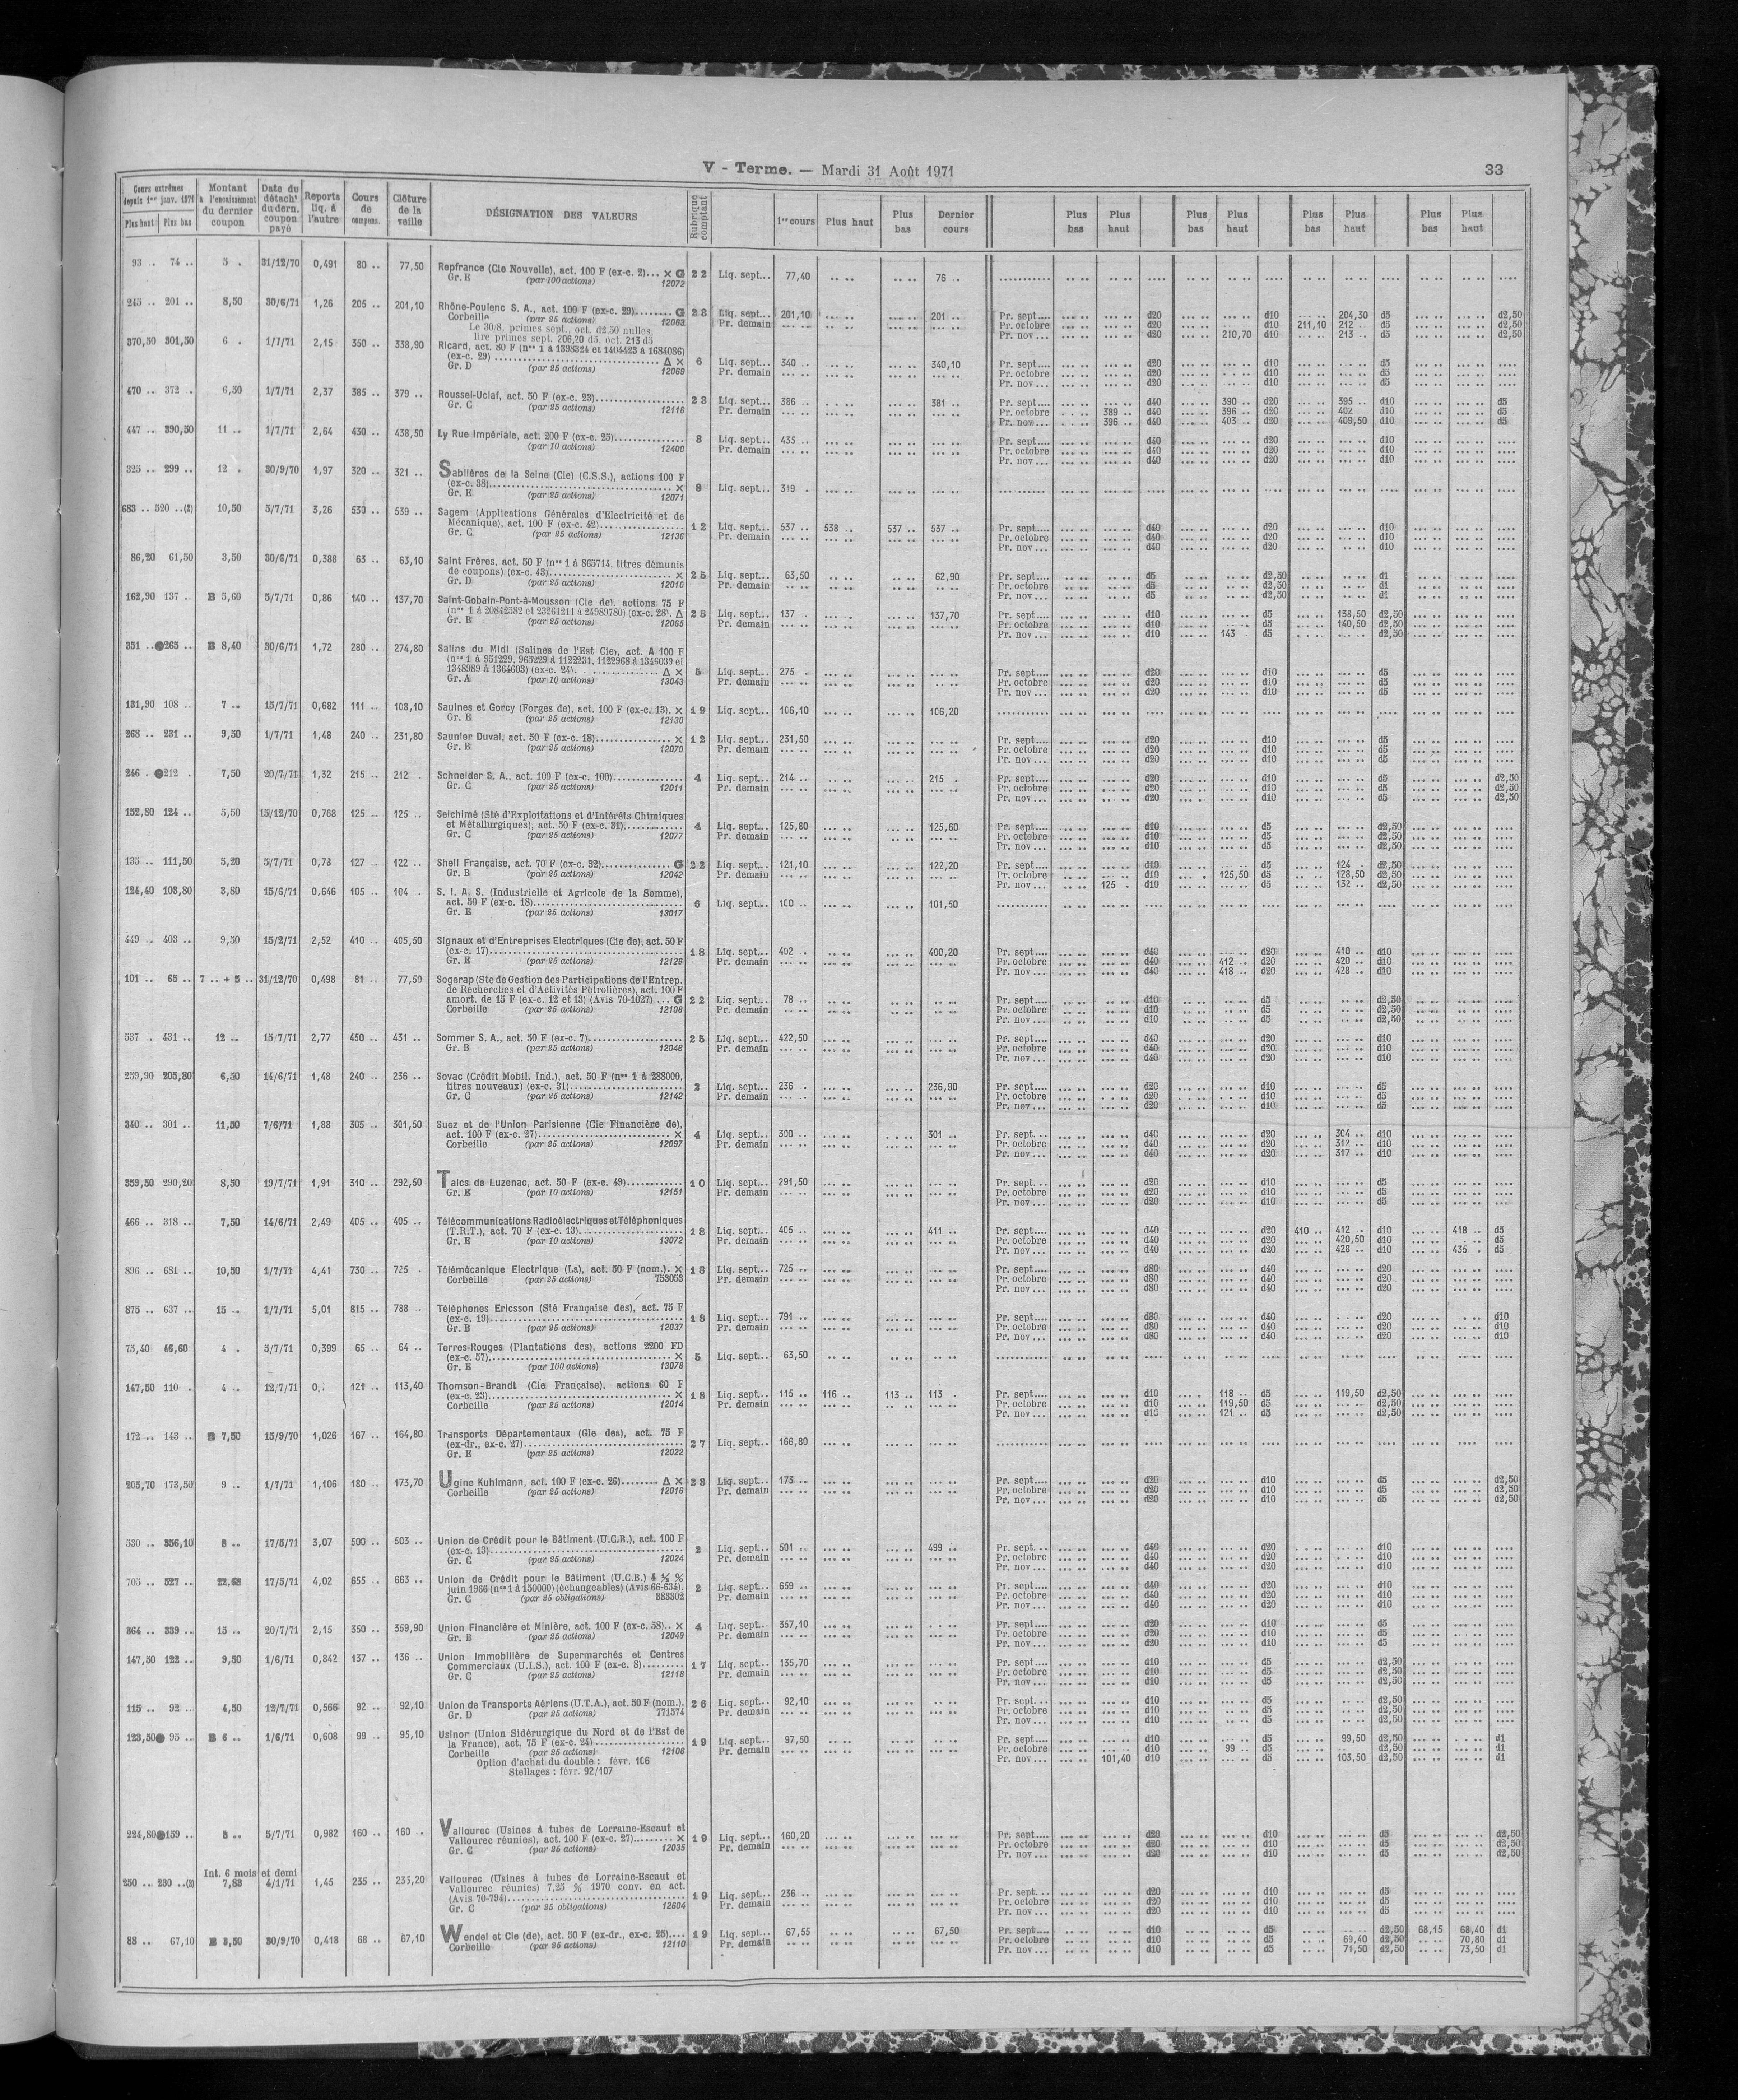 V - Terme. — Mardi 31 Août 1971
33
Cours extrêmes depuis 1er janv. 1971 Plus haut Plus bas | Montant à l'encaissement du dernier coupon | Date du détacht du dern. coupon payé | Reports liq. à l'autre | Cours de compens. | Clôture de la veille | DÉSIGNATION DES VALEURS | Rubrique comptant | 1er cours | Plus haut | Plus bas | Dernier cours | Plus bas | Plus haut | Plus bas | Plus haut | Plus bas | Plus haut | Plus bas | Plus haut
93 . 74 .. 5 . 31/12/70 0,491 80 .. 77,50 Repfrance (Cie Nouvelle), act. 100 F (ex-c. 2)... × G 22 Liq. sept... 77,40 76 ..
Gr. E (par 100 actions) 12072
245 .. 201 .. 8,50 30/6/71 1,26 205 .. 201,10 Rhône-Poulenc S. A., act. 100 F (ex-c. 29)........ G 28 Liq. sept... 201,10 201 .. Pr. sept.... d20 d10 204,30 d5 d2,50
Corbeille (par 25 actions) 12063 Pr. demain Pr. octobre d20 d10 211,10 212 .. d5 d2,50
Le 30/8, primes sept., oct. d2,50 nulles, Pr. nov... d20 210,70 d10 213 .. d5 d2,50
lire primes sept. 206,20 d5, oct. 213 d5
370,50 301,50 6 . 1/7/71 2,15 350 .. 338,90 Ricard, act. 80 F (nos 1 à 1398324 et 1404423 à 1684086)
(ex-c. 29) ........ Δ × 6 Liq. sept... 340 .. 340,10 Pr. sept.... d20 d10 d5
Gr. D (par 25 actions) 12069 Pr. demain Pr. octobre d20 d10 d5
Pr. nov... d20 d10 d5
470 .. 372 .. 6,50 1/7/71 2,37 385 .. 379 .. Roussel-Uclaf, act. 50 F (ex-c. 23)........ 23 Liq. sept... 386 .. 381 .. Pr. sept.... d40 390 .. d20 395 .. d10 d5
Gr. C (par 25 actions) 12116 Pr. demain Pr. octobre 389 .. d40 396 .. d20 402 d10 d5
Pr. nov... 396 .. d40 403 .. d20 409,50 d10 d5
447 .. 390,50 11 .. 1/7/71 2,64 430 .. 438,50 Ly Rue Impériale, act. 200 F (ex-c. 25)........ 3 Liq. sept... 435 .. Pr. sept.... d40 d20 d10
(par 10 actions) 12400 Pr. demain Pr. octobre d40 d20 d10
Pr. nov... d40 d20 d10
325 .. 299 .. 12 . 30/9/70 1,97 320 .. 321 .. Sablières de la Seine (Cie) (C.S.S.), actions 100 F
(ex-c. 38)........ × 8 Liq. sept... 319 .
Gr. E (par 25 actions) 12071
683 .. 520 ..(2) 10,50 5/7/71 3,26 530 .. 539 .. Sagem (Applications Générales d'Electricité et de
Mécanique), act. 100 F (ex-c. 42)........ 12 Liq. sept... 537 .. 538 .. 537 .. 537 .. Pr. sept.... d40 d20 d10
Gr. C (par 25 actions) 12136 Pr. demain Pr. octobre d40 d20 d10
Pr. nov... d40 d20 d10
86,20 61,50 3,50 30/6/71 0,388 63 .. 63,10 Saint Frères, act. 50 F (nos 1 à 865714, titres démunis
de coupons) (ex-c. 43)........ × 25 Liq. sept... 63,50 62,90 Pr. sept.... d5 d2,50 d1
Gr. D (par 25 actions) 12010 Pr. demain Pr. octobre d5 d2,50 d1
Pr. nov... d5 d2,50 d1
162,90 137 .. B 5,60 5/7/71 0,86 140 .. 137,70 Saint-Gobain-Pont-à-Mousson (Cie de), actions 75 F
(nos 1 à 20842582 et 23261211 à 24989780) (ex-c. 28). Δ 28 Liq. sept... 137 . 137,70 Pr. sept.... d10 d5 138,50 d2,50
Gr. B (par 25 actions) 12065 Pr. demain Pr. octobre d10 d5 140,50 d2,50
Pr. nov... d10 143 d5 d2,50
351 ..●265 .. B 8,40 30/6/71 1,72 280 .. 274,80 Salins du Midi (Salines de l'Est Cie), act. A 100 F
(nos 1 à 951229, 965229 à 1122231, 1122968 à 1346039 et
1348989 à 1364603) (ex-c. 24). ........ Δ × 5 Liq. sept... 275 . Pr. sept.... d20 d10 d5
Gr. A (par 10 actions) 13043 Pr. demain Pr. octobre d20 d10 d5
Pr. nov... d20 d10 d5
131,90 108 .. 7 .. 15/7/71 0,682 111 .. 108,10 Saulnes et Gorcy (Forges de), act. 100 F (ex-c. 13). × 19 Liq. sept... 106,10 106,20
Gr. E (par 25 actions) 12130
268 .. 231 .. 9,50 1/7/71 1,48 240 .. 231,80 Saunier Duval, act. 50 F (ex-c. 18)........ × 12 Liq. sept... 231,50 Pr. sept.... d20 d10 d5
Gr. B (par 25 actions) 12070 Pr. demain Pr. octobre d20 d10 d5
Pr. nov... d20 d10 d5
246 . ●212 . 7,50 20/7/71 1,32 215 .. 212 . Schneider S. A., act. 100 F (ex-c. 100)........ 4 Liq. sept... 214 .. 215 . Pr. sept.... d20 d10 d5 d2,50
Gr. C (par 25 actions) 12011 Pr. demain Pr. octobre d20 d10 d5 d2,50
Pr. nov... d20 d10 d5 d2,50
152,80 124 .. 5,50 15/12/70 0,768 125 .. 125 .. Selchimé (Sté d'Exploitations et d'Intérêts Chimiques
et Métallurgiques), act. 50 F (ex-c. 31)........ 4 Liq. sept... 125,80 125,60 Pr. sept.... d10 d5 d2,50
Gr. C (par 25 actions) 12077 Pr. demain Pr. octobre d10 d5 d2,50
Pr. nov... d10 d5 d2,50
135 .. 111,50 5,20 5/7/71 0,73 127 122 .. Shell Française, act. 70 F (ex-c. 32)........ G 22 Liq. sept... 121,10 122,20 Pr. sept.... d10 d5 124 . d2,50
Gr. B (par 25 actions) 12042 Pr. demain Pr. octobre d10 125,50 d5 128,50 d2,50
Pr. nov... 125 . d10 d5 132 .. d2,50
124,40 103,80 3,80 15/6/71 0,646 105 .. 104 . S. I. A. S. (Industrielle et Agricole de la Somme),
act. 50 F (ex-c. 18)........ 6 Liq. sept... 100 .. 101,50
Gr. E (par 25 actions) 13017
449 .. 403 .. 9,50 15/2/71 2,52 410 .. 405,50 Signaux et d'Entreprises Electriques (Cie de), act. 50 F
(ex-c. 17)........ 18 Liq. sept... 402 . 400,20 Pr. sept.... d40 d20 410 .. d10
Gr. E (par 25 actions) 12126 Pr. demain Pr. octobre d40 412 .. d20 420 .. d10
Pr. nov... d40 418 .. d20 428 .. d10
101 .. 65 .. 7 .. + 5 .. 31/12/70 0,498 81 .. 77,50 Sogerap (Ste de Gestion des Participations de l'Entrep.
de Recherches et d'Activités Pétrolières), act. 100 F
amort. de 15 F (ex-c. 12 et 13) (Avis 70-1027) ... G 22 Liq. sept... 78 .. Pr. sept.... d10 d5 d2,50
Corbeille (par 25 actions) 12108 Pr. demain Pr. octobre d10 d5 d2,50
Pr. nov... d10 d5 d2,50
537 . 431 .. 12 .. 15/7/71 2,77 450 .. 431 .. Sommer S. A., act. 50 F (ex-c. 7)........ 25 Liq. sept... 422,50 Pr. sept.... d40 d20 d10
Gr. B (par 25 actions) 12046 Pr. demain Pr. octobre d40 d20 d10
Pr. nov... d40 d20 d10
259,90 205,80 6,50 14/6/71 1,48 240 .. 236 .. Sovac (Crédit Mobil. Ind.), act. 50 F (nos 1 à 288000,
titres nouveaux) (ex-c. 31)........ 2 Liq. sept... 236 .. 236,90 Pr. sept.... d20 d10 d5
Gr. C (par 25 actions) 12142 Pr. demain Pr. octobre d20 d10 d5
Pr. nov... d20 d10 d5
340 .. 301 .. 11,50 7/6/71 1,88 305 .. 301,50 Suez et de l'Union Parisienne (Cie Financière de),
act. 100 F (ex-c. 27)........ × 4 Liq. sept... 300 .. 301 .. Pr. sept... d40 d20 304 .. d10
Corbeille (par 25 actions) 12097 Pr. demain Pr. octobre d40 d20 312 .. d10
Pr. nov... d40 d20 317 .. d10
359,50 290,20 8,50 19/7/71 1,91 310 .. 292,50 Talcs de Luzenac, act. 50 F (ex-c. 49)........ 10 Liq. sept... 291,50 Pr. sept... d20 d10 d5
Gr. E (par 10 actions) 12151 Pr. demain Pr. octobre d20 d10 d5
Pr. nov... d20 d10 d5
466 .. 318 .. 7,50 14/6/71 2,49 405 .. 405 .. Télécommunications Radioélectriques et Téléphoniques
(T.R.T.), act. 70 F (ex-c. 13)........ 18 Liq. sept... 405 .. 411 .. Pr. sept.... d40 d20 410 .. 412 .. d10 418 .. d5
Gr. E (par 10 actions) 13072 Pr. demain Pr. octobre d40 d20 420,50 d10 d5
Pr. nov... d40 d20 428 .. d10 435 . d5
896 .. 681 .. 10,50 1/7/71 4,41 730 .. 725 . Télémécanique Electrique (La), act. 50 F (nom.). × 18 Liq. sept... 725 .. Pr. sept.... d80 d40 d20
Corbeille (par 25 actions) 753053 Pr. demain Pr. octobre d80 d40 d20
Pr. nov... d80 d40 d20
875 .. 637 .. 15 .. 1/7/71 5,01 815 .. 788 . Téléphones Ericsson (Sté Française des), act. 75 F
(ex-c. 19)........ 18 Liq. sept... 791 .. Pr. sept.... d80 d40 d20 d10
Gr. B (par 25 actions) 12037 Pr. demain Pr. octobre d80 d40 d20 d10
Pr. nov... d80 d40 d20 d10
75,40 46,60 4 . 5/7/71 0,399 65 .. 64 .. Terres-Rouges (Plantations des), actions 2200 FD
(ex-c. 57)........ × 5 Liq. sept... 63,50
Gr. E (par 100 actions) 13078
147,50 110 . 4 .. 12/7/71 121 .. 113,40 Thomson-Brandt (Cie Française), actions 60 F
(ex-c. 23)........ × 18 Liq. sept... 115 .. 116 .. 113 .. 113 . Pr. sept.... d10 118 .. d5 119,50 d2,50
Corbeille (par 25 actions) 12014 Pr. demain Pr. octobre d10 119,50 d5 d2,50
Pr. nov... d10 121 .. d5 d2,50
172 .. 143 .. B 7,50 15/9/70 1,026 167 .. 164,80 Transports Départementaux (Gle des), act. 75 F
(ex-dr., ex-c. 27)........ 27 Liq. sept... 166,80
Gr. E (par 25 actions) 12022
205,70 173,50 9 .. 1/7/71 1,106 180 .. 173,70 Ugine Kuhlmann, act. 100 F (ex-c. 26)........ Δ × 28 Liq. sept... 173 .. Pr. sept.... d20 d10 d5 d2,50
Corbeille (par 25 actions) 12016 Pr. demain Pr. octobre d20 d10 d5 d2,50
Pr. nov... d20 d10 d5 d2,50
530 .. 356,10 8 .. 17/5/71 3,07 500 .. 503 .. Union de Crédit pour le Bâtiment (U.C.B.), act. 100 F
(ex-c. 13)........ 2 Liq. sept... 501 .. 499 .. Pr. sept... d40 d20 d10
Gr. C (par 25 actions) 12024 Pr. demain Pr. octobre d40 d20 d10
Pr. nov... d40 d20 d10
705 .. 527 .. 22,68 17/5/71 4,02 655 .. 663 .. Union de Crédit pour le Bâtiment (U.C.B.) 4 ½ %
juin 1966 (nos 1 à 150000) (échangeables) (Avis 66-634). 2 Liq. sept... 659 .. Pr. sept.... d40 d20 d10
Gr. C (par 25 obligations) 383302 Pr. demain Pr. octobre d40 d20 d10
Pr. nov... d40 d20 d10
364 .. 339 .. 15 .. 20/7/71 2,15 350 .. 359,90 Union Financière et Minière, act. 100 F (ex-c. 58).. × 4 Liq. sept... 357,10 Pr. sept.... d20 d10 d5
Gr. B (par 25 actions) 12049 Pr. demain Pr. octobre d20 d10 d5
Pr. nov... d20 d10 d5
147,50 122 .. 9,50 1/6/71 0,842 137 .. 136 .. Union Immobilière de Supermarchés et Centres
Commerciaux (U.I.S.), act. 100 F (ex-c. 8)........ 17 Liq. sept... 135,70 Pr. sept.... d10 d5 d2,50
Gr. C (par 25 actions) 12118 Pr. demain Pr. octobre d10 d5 d2,50
Pr. nov... d10 d5 d2,50
115 .. 92 .. 4,50 12/7/71 0,566 92 .. 92,10 Union de Transports Aériens (U.T.A.), act. 50 F (nom.). 26 Liq. sept... 92,10 Pr. sept... d10 d5 d2,50
Gr. D (par 25 actions) 771574 Pr. demain Pr. octobre d10 d5 d2,50
Pr. nov... d10 d5 d2,50
123,50● 95 .. B 6 .. 1/6/71 0,608 99 .. 95,10 Usinor (Union Sidérurgique du Nord et de l'Est de
la France), act. 75 F (ex-c. 24)........ 19 Liq. sept... 97,50 Pr. sept.... d10 d5 99,50 d2,50 d1
Corbeille (par 25 actions) 12106 Pr. demain Pr. octobre d10 99 .. d5 d2,50 d1
Option d'achat du double : févr. 106 Pr. nov... 101,40 d10 d5 103,50 d2,50 d1
Stellages : févr. 92/107
224,80●159 .. 8 .. 5/7/71 0,982 160 .. 160 .. Vallourec (Usines à tubes de Lorraine-Escaut et
Vallourec réunies), act. 100 F (ex-c. 27)........ × 19 Liq. sept... 160,20 Pr. sept.... d20 d10 d5 d2,50
Gr. C (par 25 actions) 12035 Pr. demain Pr. octobre d20 d10 d5 d2,50
Pr. nov... d20 d10 d5 d2,50
Int. 6 mois et demi
250 .. 230 ..(2) 7,83 4/1/71 1,45 235 .. 233,20 Vallourec (Usines à tubes de Lorraine-Escaut et
Vallourec réunies) 7,25 % 1970 conv. en act.
(Avis 70-794)........ 19 Liq. sept... 236 .. Pr. sept... d20 d10 d5
Gr. C (par 25 obligations) 12604 Pr. demain Pr. octobre d20 d10 d5
Pr. nov... d20 d10 d5
88 .. 67,10 B 3,50 30/9/70 0,418 68 .. 67,10 Wendel et Cie (de), act. 50 F (ex-dr., ex-c. 25).... 19 Liq. sept... 67,55 67,50 Pr. sept.... d10 d5 d2,50 68,15 68,40 d1
Corbeille (par 25 actions) 12110 Pr. demain Pr. octobre d10 d5 69,40 d2,50 70,80 d1
Pr. nov... d10 d5 71,50 d2,50 73,50 d1